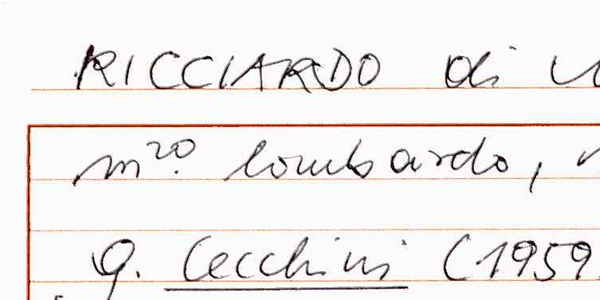 RICCIARDO di
m^ro. lombardo,
G. Cecchini (1959